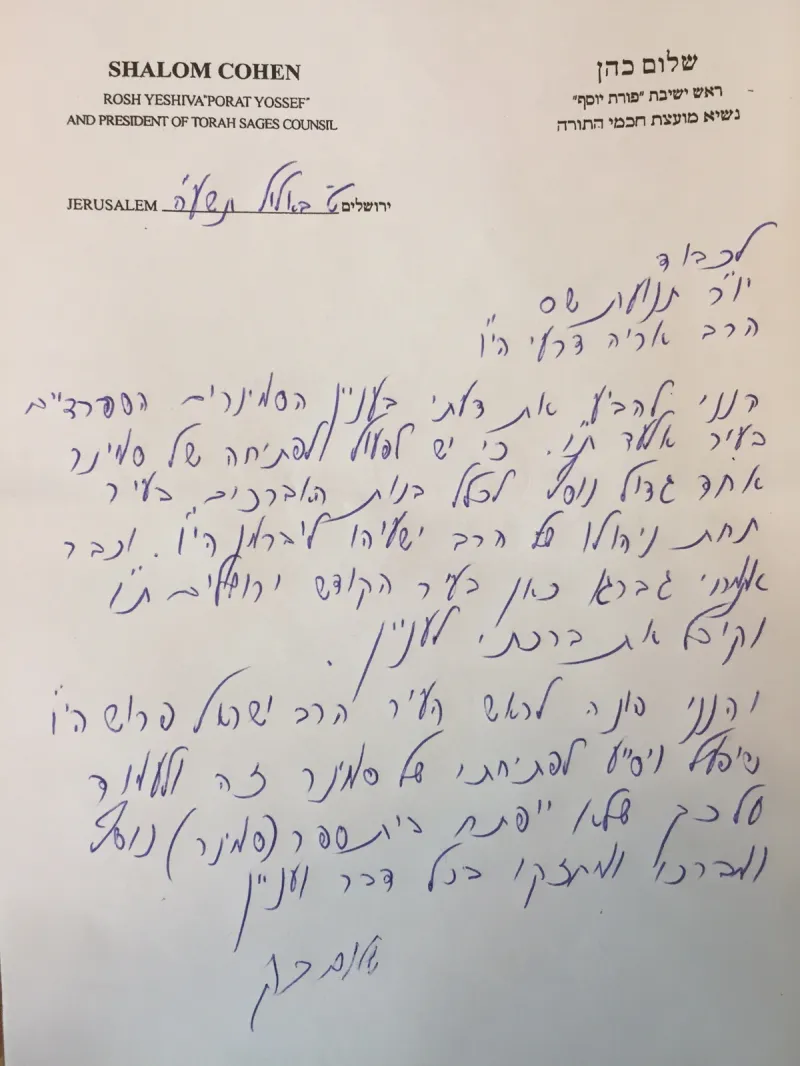 SHALOM COHEN
ROSH YESHIVA"PORAT YOSSEF"
AND PRESIDENT OF TORAH SAGES COUNSIL
שלום כהן
ראש ישיבת "פורת יוסף"
נשיא מועצת חכמי התורה
JERUSALEM ט' באלול תשע"ה ירושלים
לכבוד
יו"ר תנועת שס
הרב אריה דרעי הי"ו
הנני להביע את דעתי בעניין הסמינרים הספרדיים
בעיר אלעד ת"ו. כי יש לפעול לפתיחה של סמינר
אחד גדול נוסף לכלל בנות האברכים בעיר
תחת ניהולו של הרב ישעיהו ליברמן הי"ו. וכבר
גברא כאן בעיר הקודש ירושלים ת"ו
וקיבל את ברכתי לעניין.
והנני פונה לראש העיר הרב ישראל פרוש הי"ו
שיפעל ויסייע לפתיחתי של סמינר זה ולעמוד
על כך שלא ייפתח בית ספר (סמינר) נוסף
ומברכו ומחזקו בכל דבר ועניין
שלום כהן